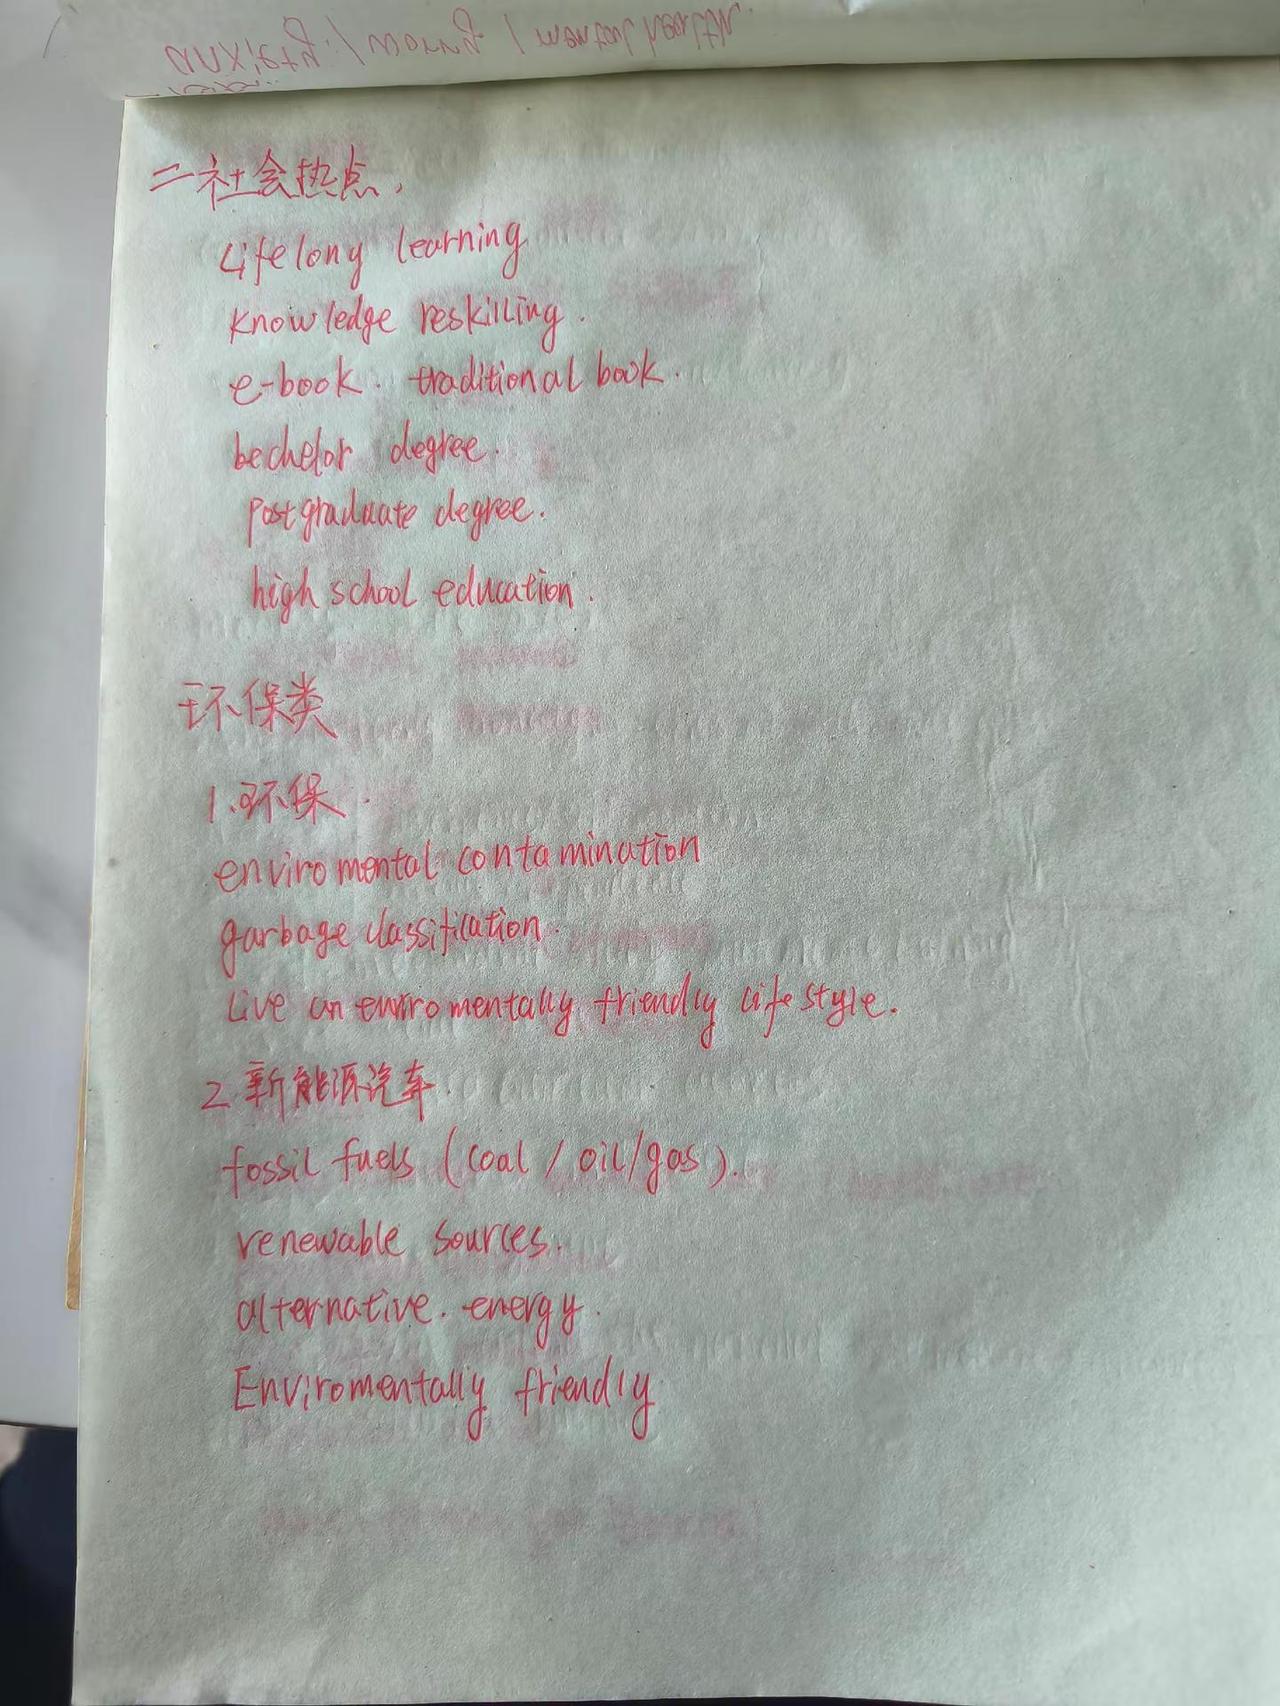 二社会热点.
Lifelong learning
knowledge reskilling.
e-book. traditional book.
bechelor degree.
postgraduate degree.
high school education.
环保类
1.环保.
enviromental contamination
garbage classification.
Live an enviromentally friendly lifestyle.
2.新能源汽车.
fossil fuels (coal / oil/gas).
renewable sources.
alternative. energy.
Enviromentally friendly